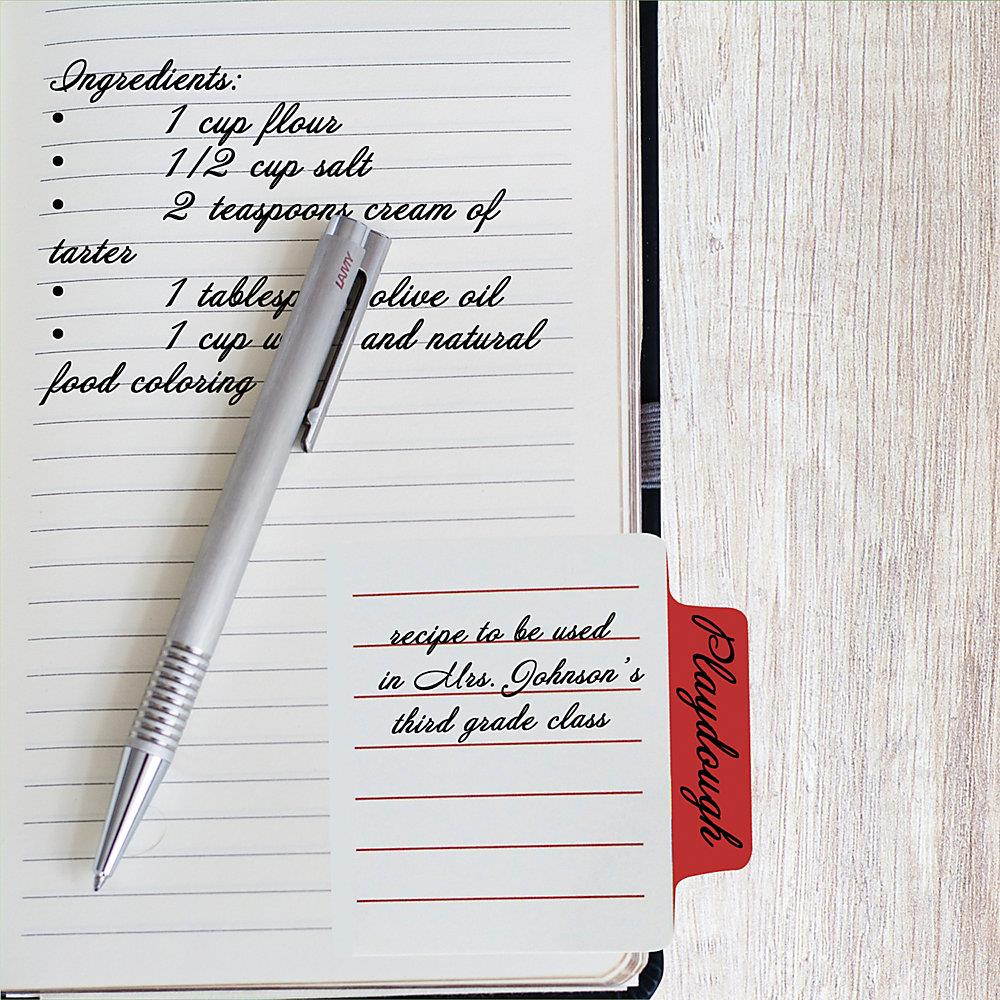 Ingredients:
• 1 cup flour
• 1/2 cup salt
• 2 teaspoons cream of
tarter
• 1 olive oil
• 1 cup and natural
food coloring
LAMY
recipe to be used
in Mrs. Johnson's
third grade class
Playdough